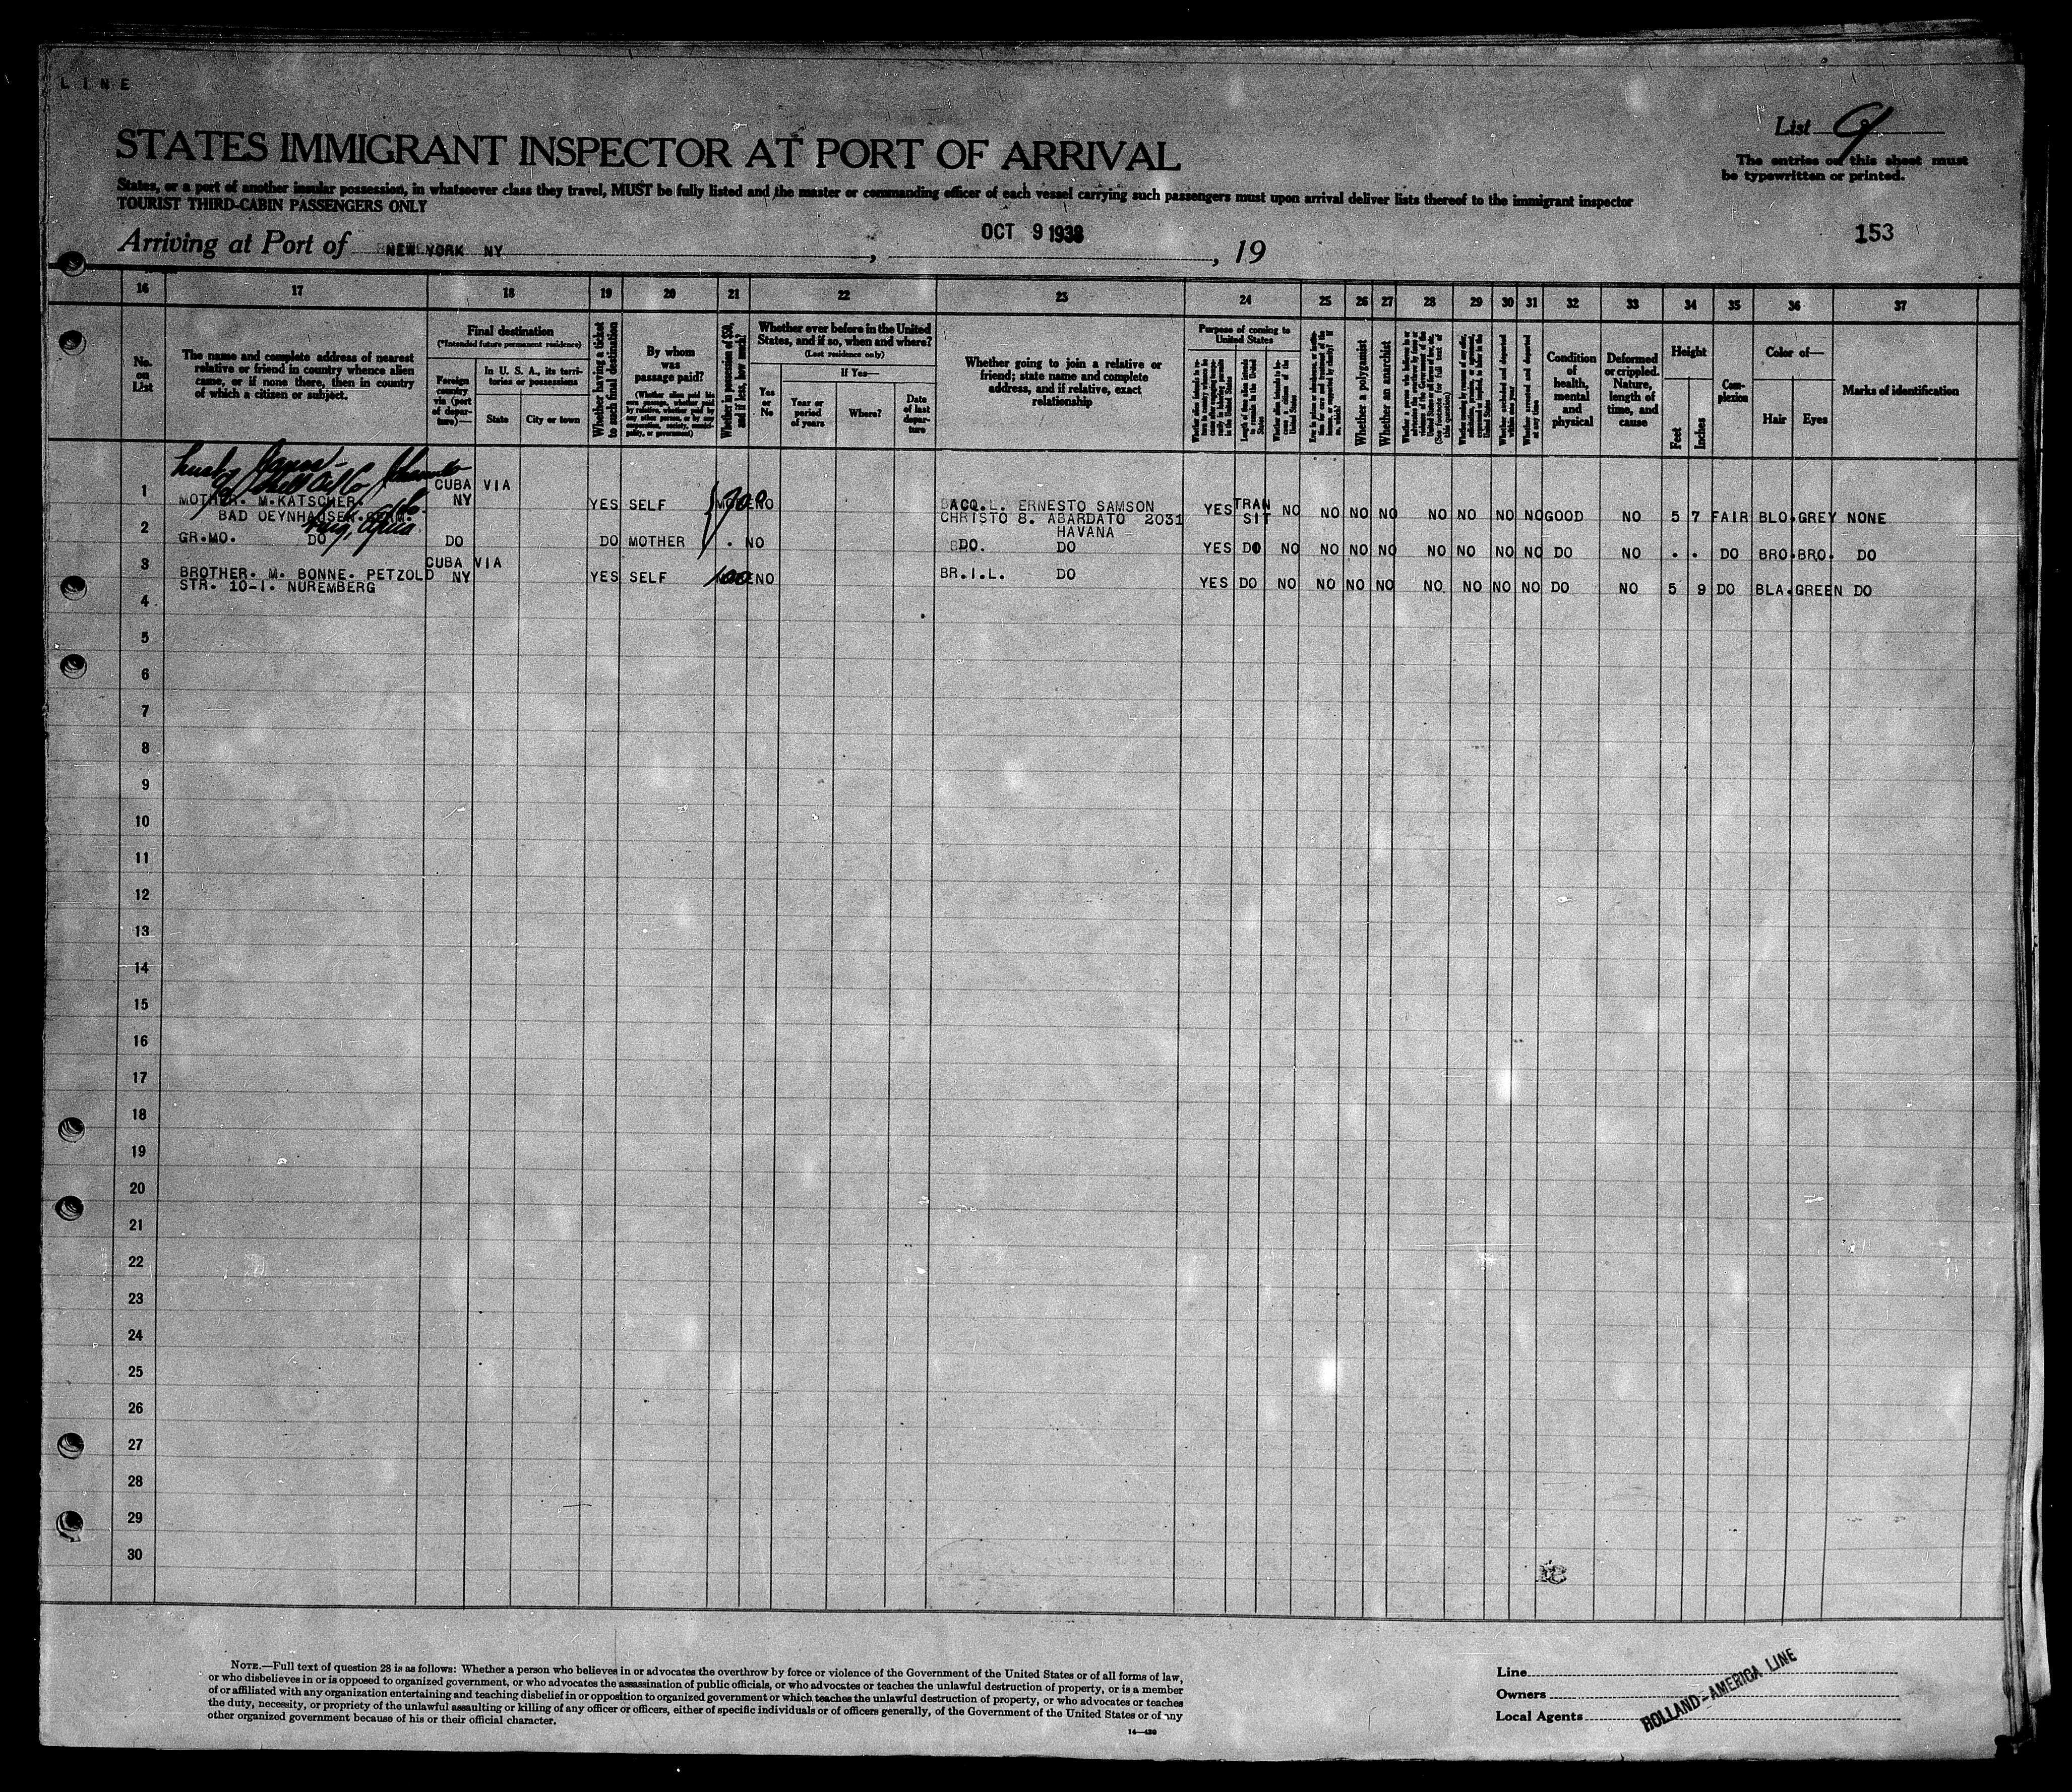 LINE
List 9
STATES IMMIGRANT INSPECTOR AT PORT OF ARRIVAL
The entries on this sheet must
be typewritten or printed.
States, or a port of another insular possession, in whatsoever class they travel, MUST be fully listed and the master or commanding officer of each vessel carrying such passengers must upon arrival deliver lists thereof to the immigrant inspector
TOURIST THIRD-CABIN PASSENGERS ONLY
Arriving at Port of NEW YORK NY, OCT 9 1938, 19
153
16 17 18 19 20 21 22 23 24 25 26 27 28 29 30 31 32 33 34 35 36 37
No. on List
The name and complete address of nearest
relative or friend in country whence alien
came, or if none there, then in country
of which a citizen or subject.
Final destination
(*Intended future permanent residence)
Foreign country via (port of departure)—
In U. S. A., its territories or possessions
State
City or town
Whether having a ticket to such final destination
By whom was passage paid?
(Whether alien paid his own passage, whether paid by relative, whether paid by any other person, or by any corporation, society, municipality, or government)
Whether in possession of $50, and if less, how much?
Whether ever before in the United
States, and if so, when and where?
(Last residence only)
Yes or No
If Yes—
Year or period of years
Where?
Date of last departure
Whether going to join a relative or
friend; state name and complete
address, and if relative, exact
relationship
Purpose of coming to United States
Length of time alien intends to remain in the United States
Whether alien intends to become a citizen of the United States
Whether a polygamist
Whether an anarchist
Condition of health, mental and physical
Deformed or crippled. Nature, length of time, and cause
Height
Feet
Inches
Complexion
Color of—
Hair
Eyes
Marks of identification
1 MOTHER. M.KATSCHER. CUBA VIA NY YES SELF NO ERNESTO SAMSON YES TRANSIT NO NO NO NO NO NO NO NO GOOD NO 5 7 FAIR BLO. GREY NONE
BAD OEYNHAUSEN. CHRISTO B. ABARDATO 2031
HAVANA
2 GR.MO. DO DO DO MOTHER NO DO. DO YES DO NO NO NO NO NO NO NO NO DO NO . . DO BRO. BRO. DO
3 BROTHER. M. BONNE. PETZOLD CUBA VIA NY YES SELF 100 NO BR.I.L. DO YES DO NO NO NO NO NO NO NO NO DO NO 5 9 DO BLA. GREEN DO
STR. 10-I. NUREMBERG
4
5
6
7
8
9
10
11
12
13
14
15
16
17
18
19
20
21
22
23
24
25
26
27
28
29
30
NOTE.—Full text of question 28 is as follows: Whether a person who believes in or advocates the overthrow by force or violence of the Government of the United States or of all forms of law,
or who disbelieves in or is opposed to organized government, or who advocates the assassination of public officials, or who advocates or teaches the unlawful destruction of property, or is a member
of or affiliated with any organization entertaining and teaching disbelief in or opposition to organized government or which teaches the unlawful destruction of property, or who advocates or teaches
the duty, necessity, or propriety of the unlawful assaulting or killing of any officer or officers, either of specific individuals or of officers generally, of the Government of the United States or of any
other organized government because of his or their official character.
14—430
Line
Owners
Local Agents
HOLLAND-AMERICA LINE